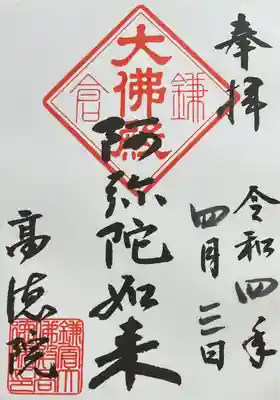 奉拝
令和四年
四月三日
鎌倉
大佛殿
阿弥陀如来
高徳院